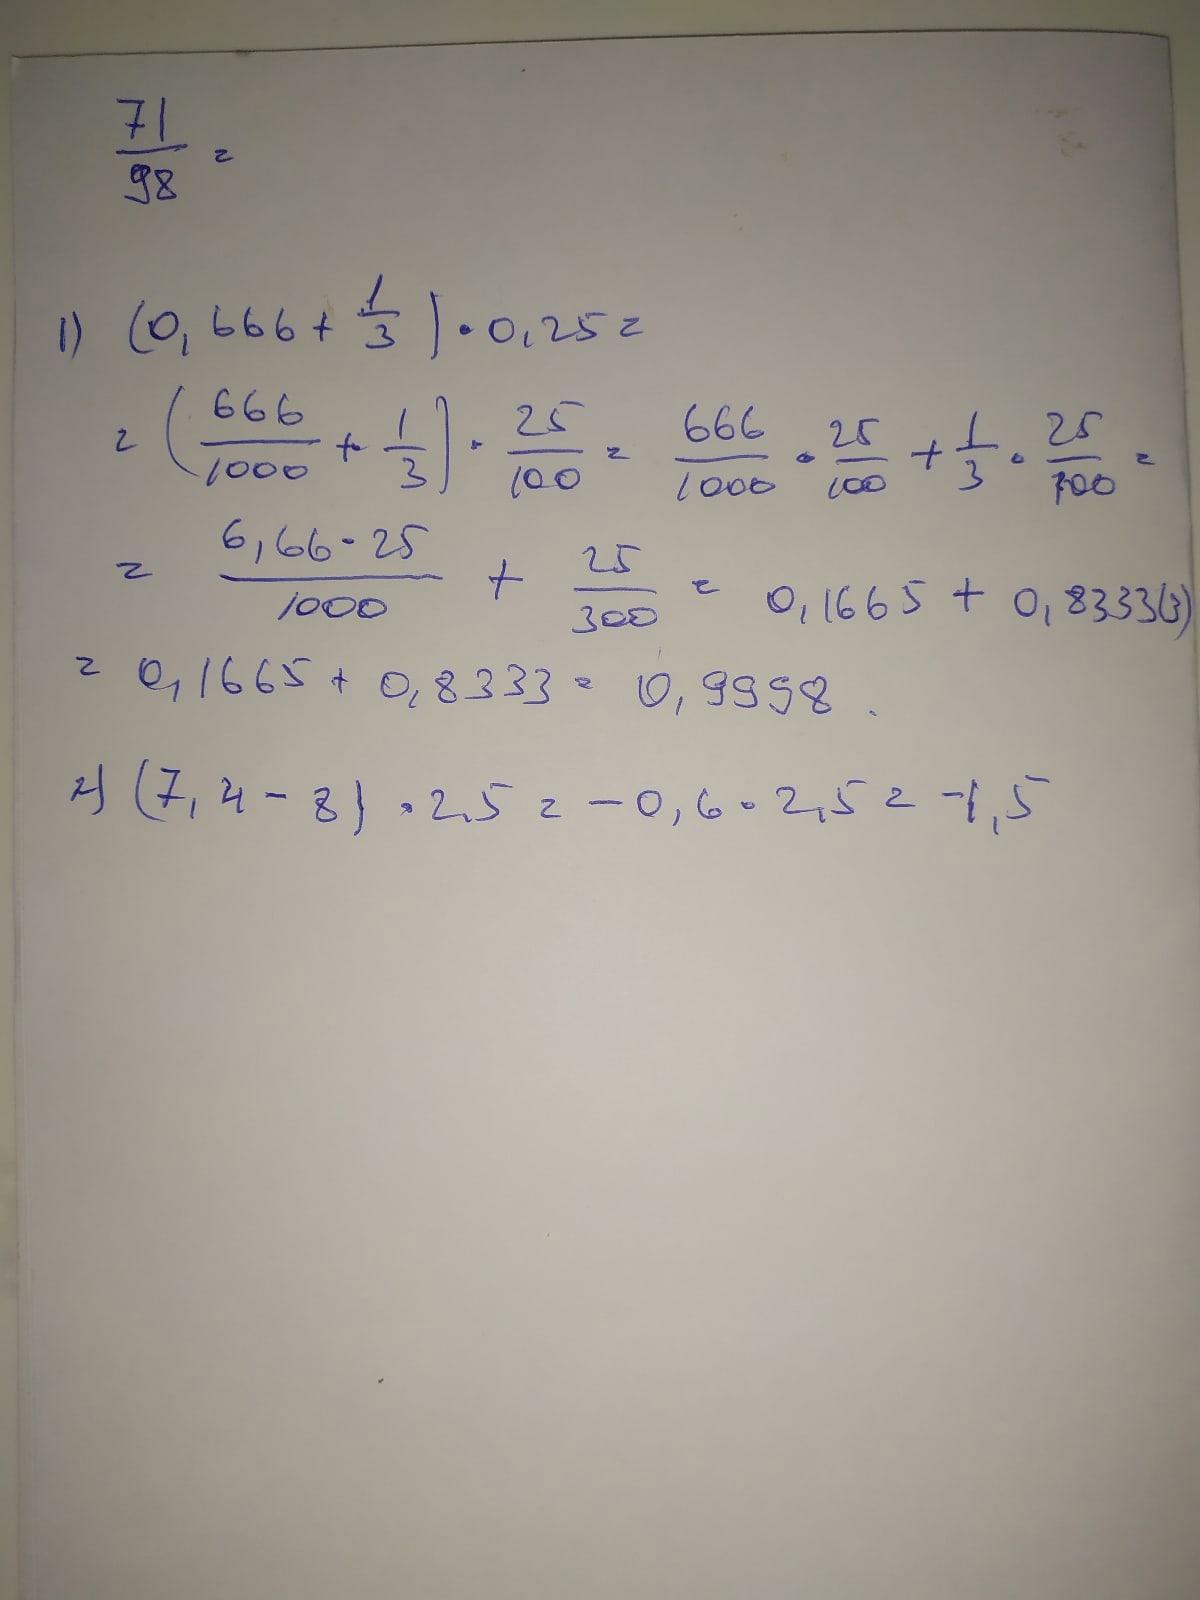 71/98 =
1) (0,666 + 1/3) · 0,25 =
= (666/1000 + 1/3) · 25/100 = 666/1000 · 25/100 + 1/3 · 25/100 =
= 6,66 · 25/1000 + 25/300 = 0,1665 + 0,8333(3)
= 0,1665 + 0,8333 = 0,9998.
2) (7,4 - 8) · 2,5 = -0,6 · 2,5 = -1,5